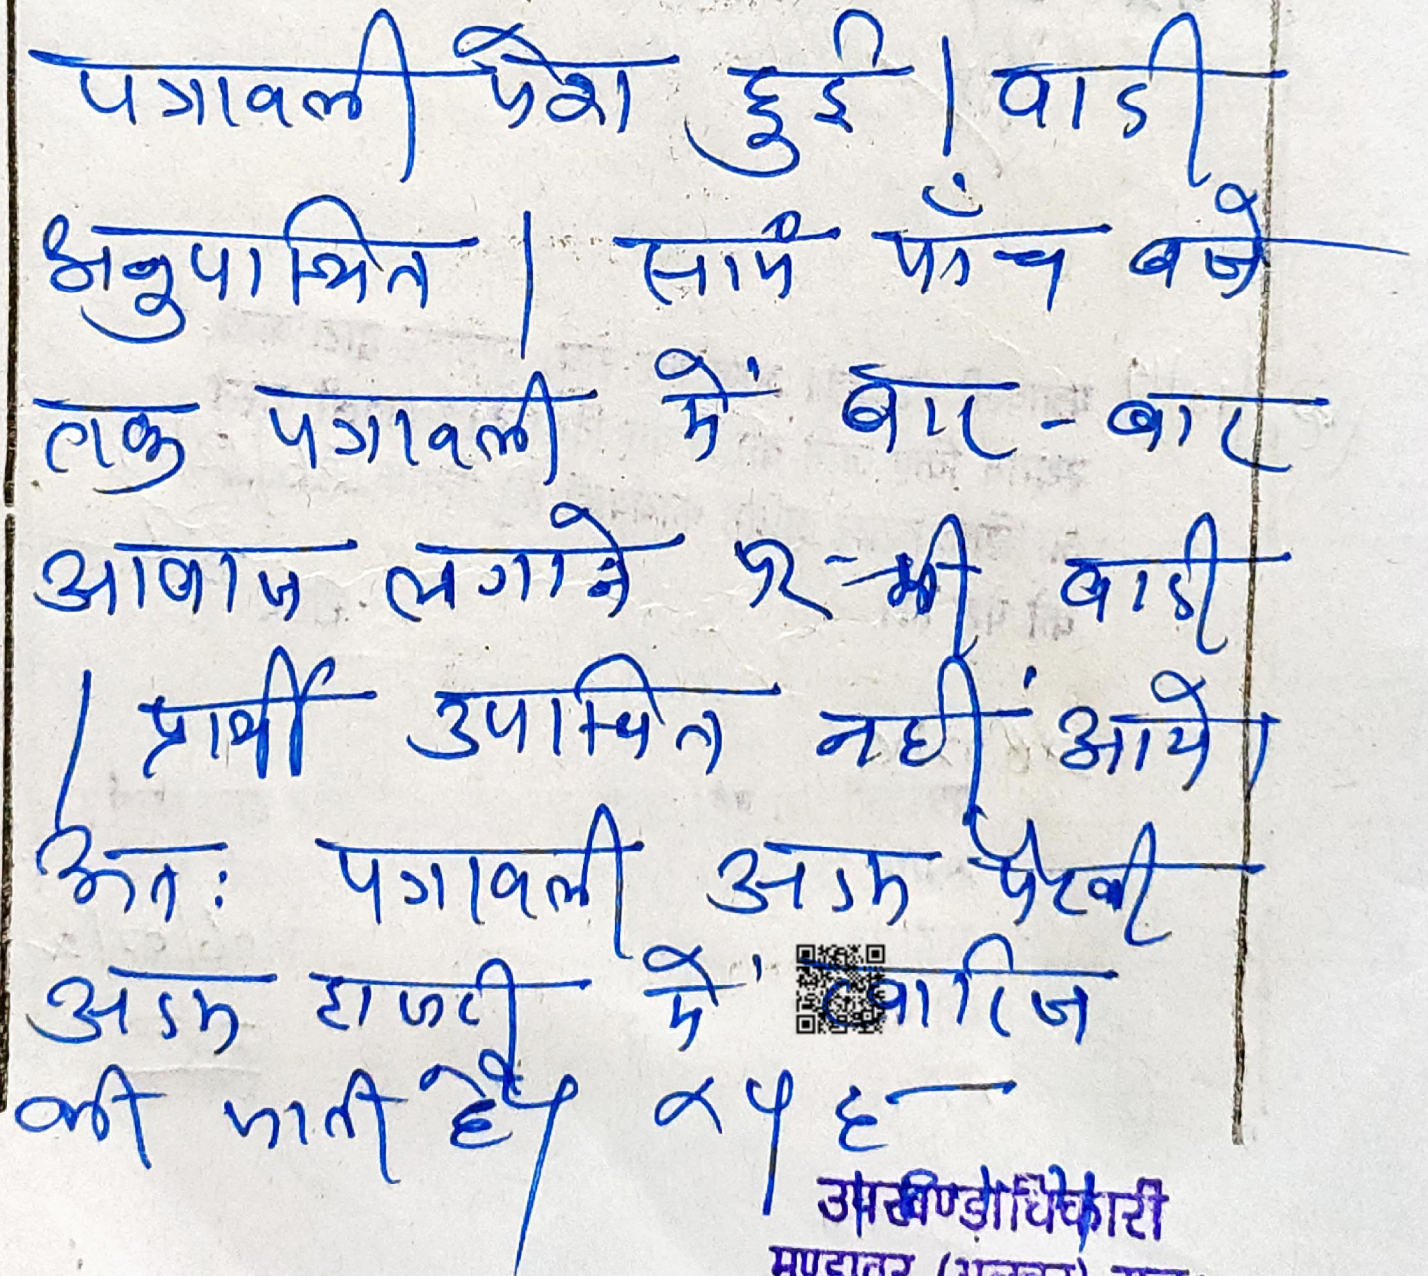 पत्रावली पेश हुई । वादी
अनुपस्थित । सायं पाँच बजे
तक पत्रावली में बार - बार
आवाज लगाने पर भी वादी
। प्रार्थी उपस्थित नहीं आये।
अतः पत्रावली अदम पैरवी
अदम हाजरी में खारिज
की जाती है।
उपखण्डाधिकारी
मण्डावर (अलवर)